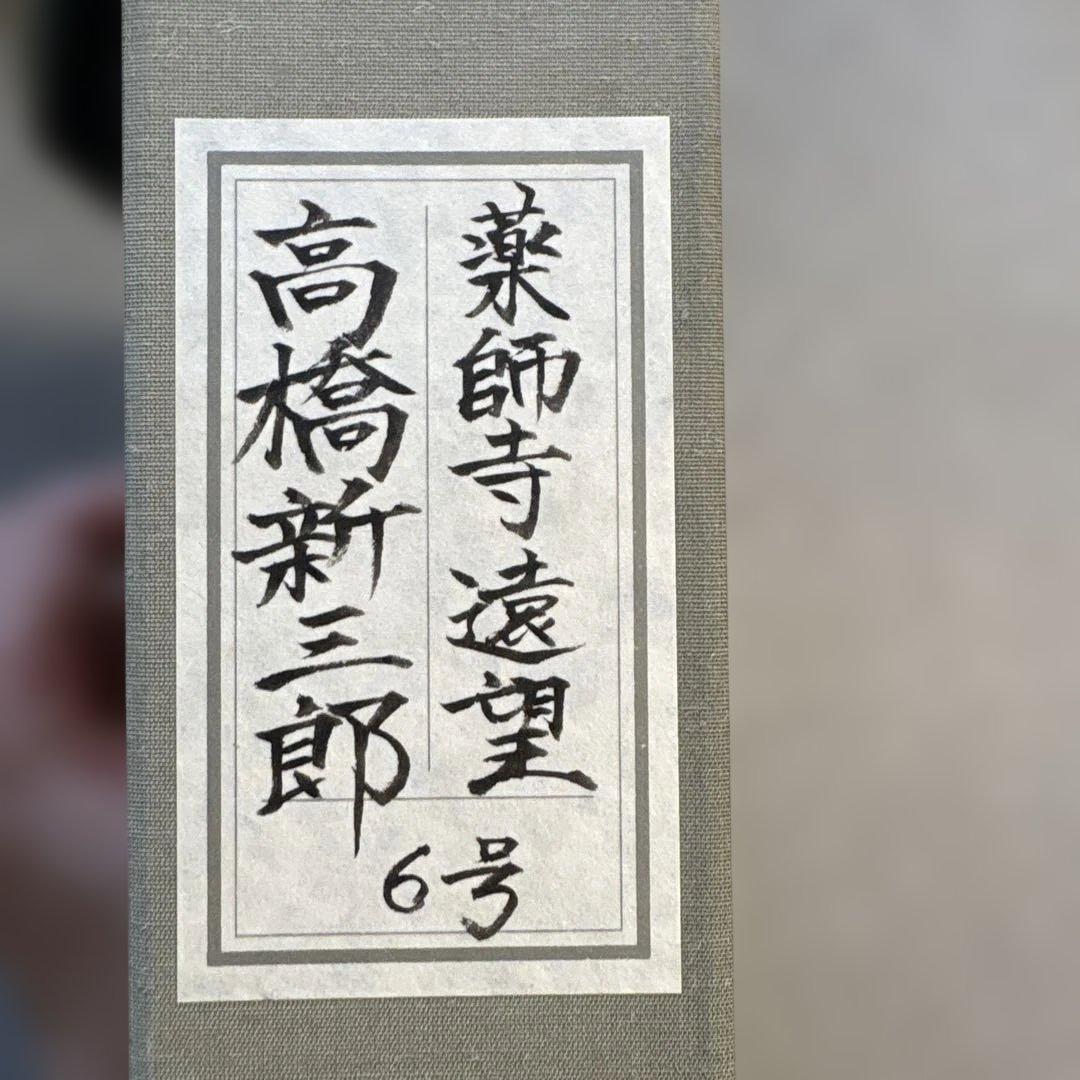 薬師寺遠望
高橋新三郎
6号